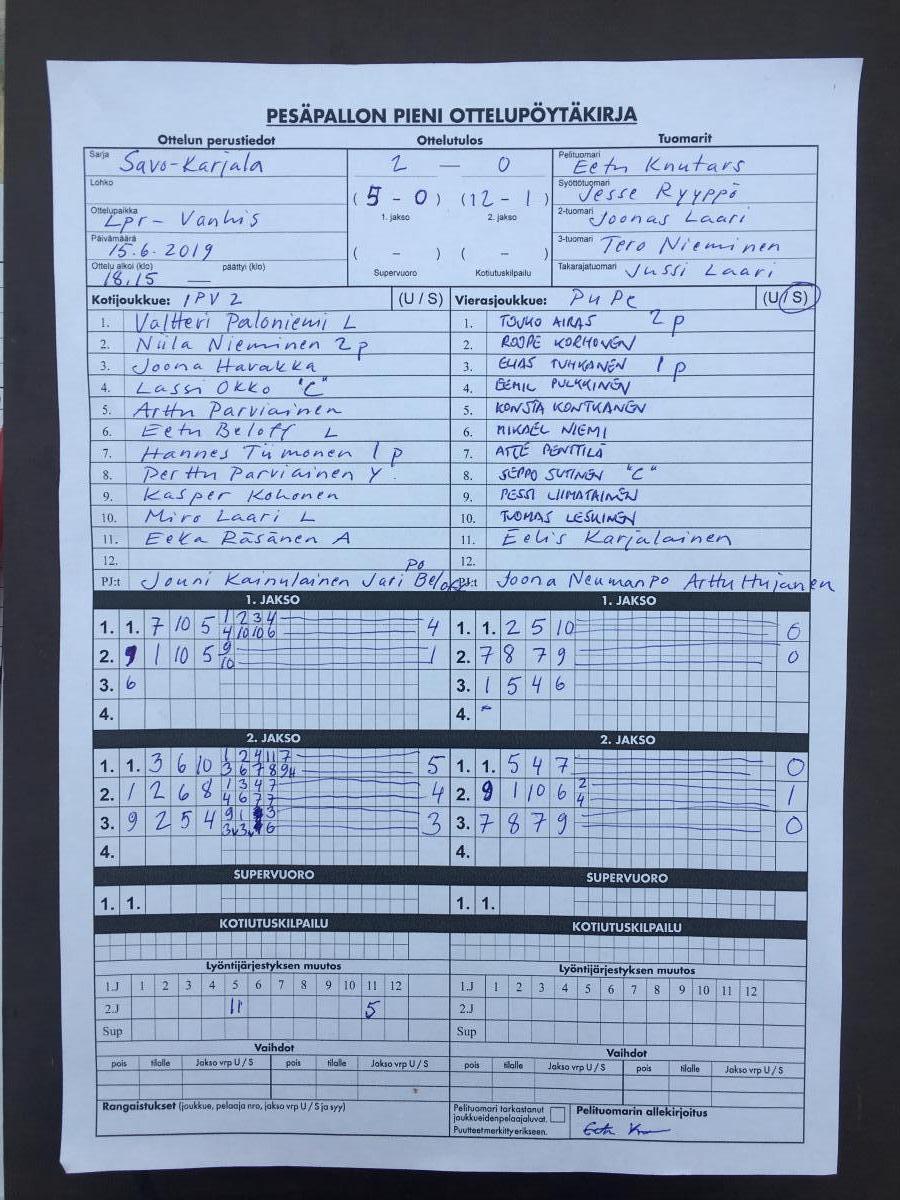 PESÄPALLON PIENI OTTELUPÖYTÄKIRJA
Ottelun perustiedot Ottelutulos Tuomarit
Sarja Savo-Karjala 2 — 0 Pelituomari Eetu Knutars
Lohko (5 - 0) (12 - 1) Syöttötuomari Jesse Ryyppö
1. jakso 2. jakso
Ottelupaikka Lpr - Vanhis 2-tuomari Joonas Laari
Päivämäärä 15.6.2019 ( - ) ( - ) 3-tuomari Tero Nieminen
Ottelu alkoi (klo) 18.15 päättyi (klo) — Supervuoro Kotiutuskilpailu Takarajatuomari Jussi Laari
Kotijoukkue: IPV 2 (U / S) Vierasjoukkue: PuPe (U / S)
1. Valtteri Paloniemi L 1. TOUKO AIRAS 2 p
2. Niila Nieminen 2 p 2. ROOPE KORHONEN
3. Joona Havakka 3. ELIAS TUHKANEN 1 p
4. Lassi Okko "C" 4. EEMIL PULKKINEN
5. Arttu Parviainen 5. KONSTA KONTKANEN
6. Eetu Beloff L 6. MIKAEL NIEMI
7. Hannes Tiimonen 1 p 7. ATTE PENTTILÄ
8. Perttu Parviainen Y 8. SEPPO SUTINEN "C"
9. Kasper Kohonen 9. PESSI LIIMATAINEN
10. Miro Laari L 10. TUOMAS LESKINEN
11. Eeka Räsänen A 11. Eelis Karjalainen
12. 12.
PJ:t Jouni Kainulainen Po Jari Beloff PJ:t Joona Neumann PO Arttu Hujanen
1. JAKSO 1. JAKSO
1. 1. 7 10 5 1 2 3 4 4 1. 1. 2 5 10 0
4 10 10 6
2. 9 1 10 5 9 1 2. 7 8 7 9 0
10
3. 6 3. 1 5 4 6
4. 4. -
2. JAKSO 2. JAKSO
1. 1. 3 6 10 1 2 4 11 7 5 1. 1. 5 4 7 0
3 6 7 8 9
2. 1 2 6 8 1 3 4 7 4 2. 9 1 10 6 2 1
4 6 7 7 4
3. 9 2 5 4 9 1 3 3 3. 7 8 7 9 0
4. 4.
SUPERVUORO SUPERVUORO
1. 1. 1. 1.
KOTIUTUSKILPAILU KOTIUTUSKILPAILU
Lyöntijärjestyksen muutos Lyöntijärjestyksen muutos
1.J 1 2 3 4 5 6 7 8 9 10 11 12 1.J 1 2 3 4 5 6 7 8 9 10 11 12
2.J 11 5 2.J
Sup Sup
Vaihdot Vaihdot
pois tilalle Jakso vrp U / S pois tilalle Jakso vrp U / S pois tilalle Jakso vrp U / S pois tilalle Jakso vrp U / S
Rangaistukset (joukkue, pelaaja nro, jakso vrp U / S ja syy) Pelituomari tarkastanut Pelituomarin allekirjoitus
joukkueiden pelaajaluvat.
Puutteet merkitty erikseen.